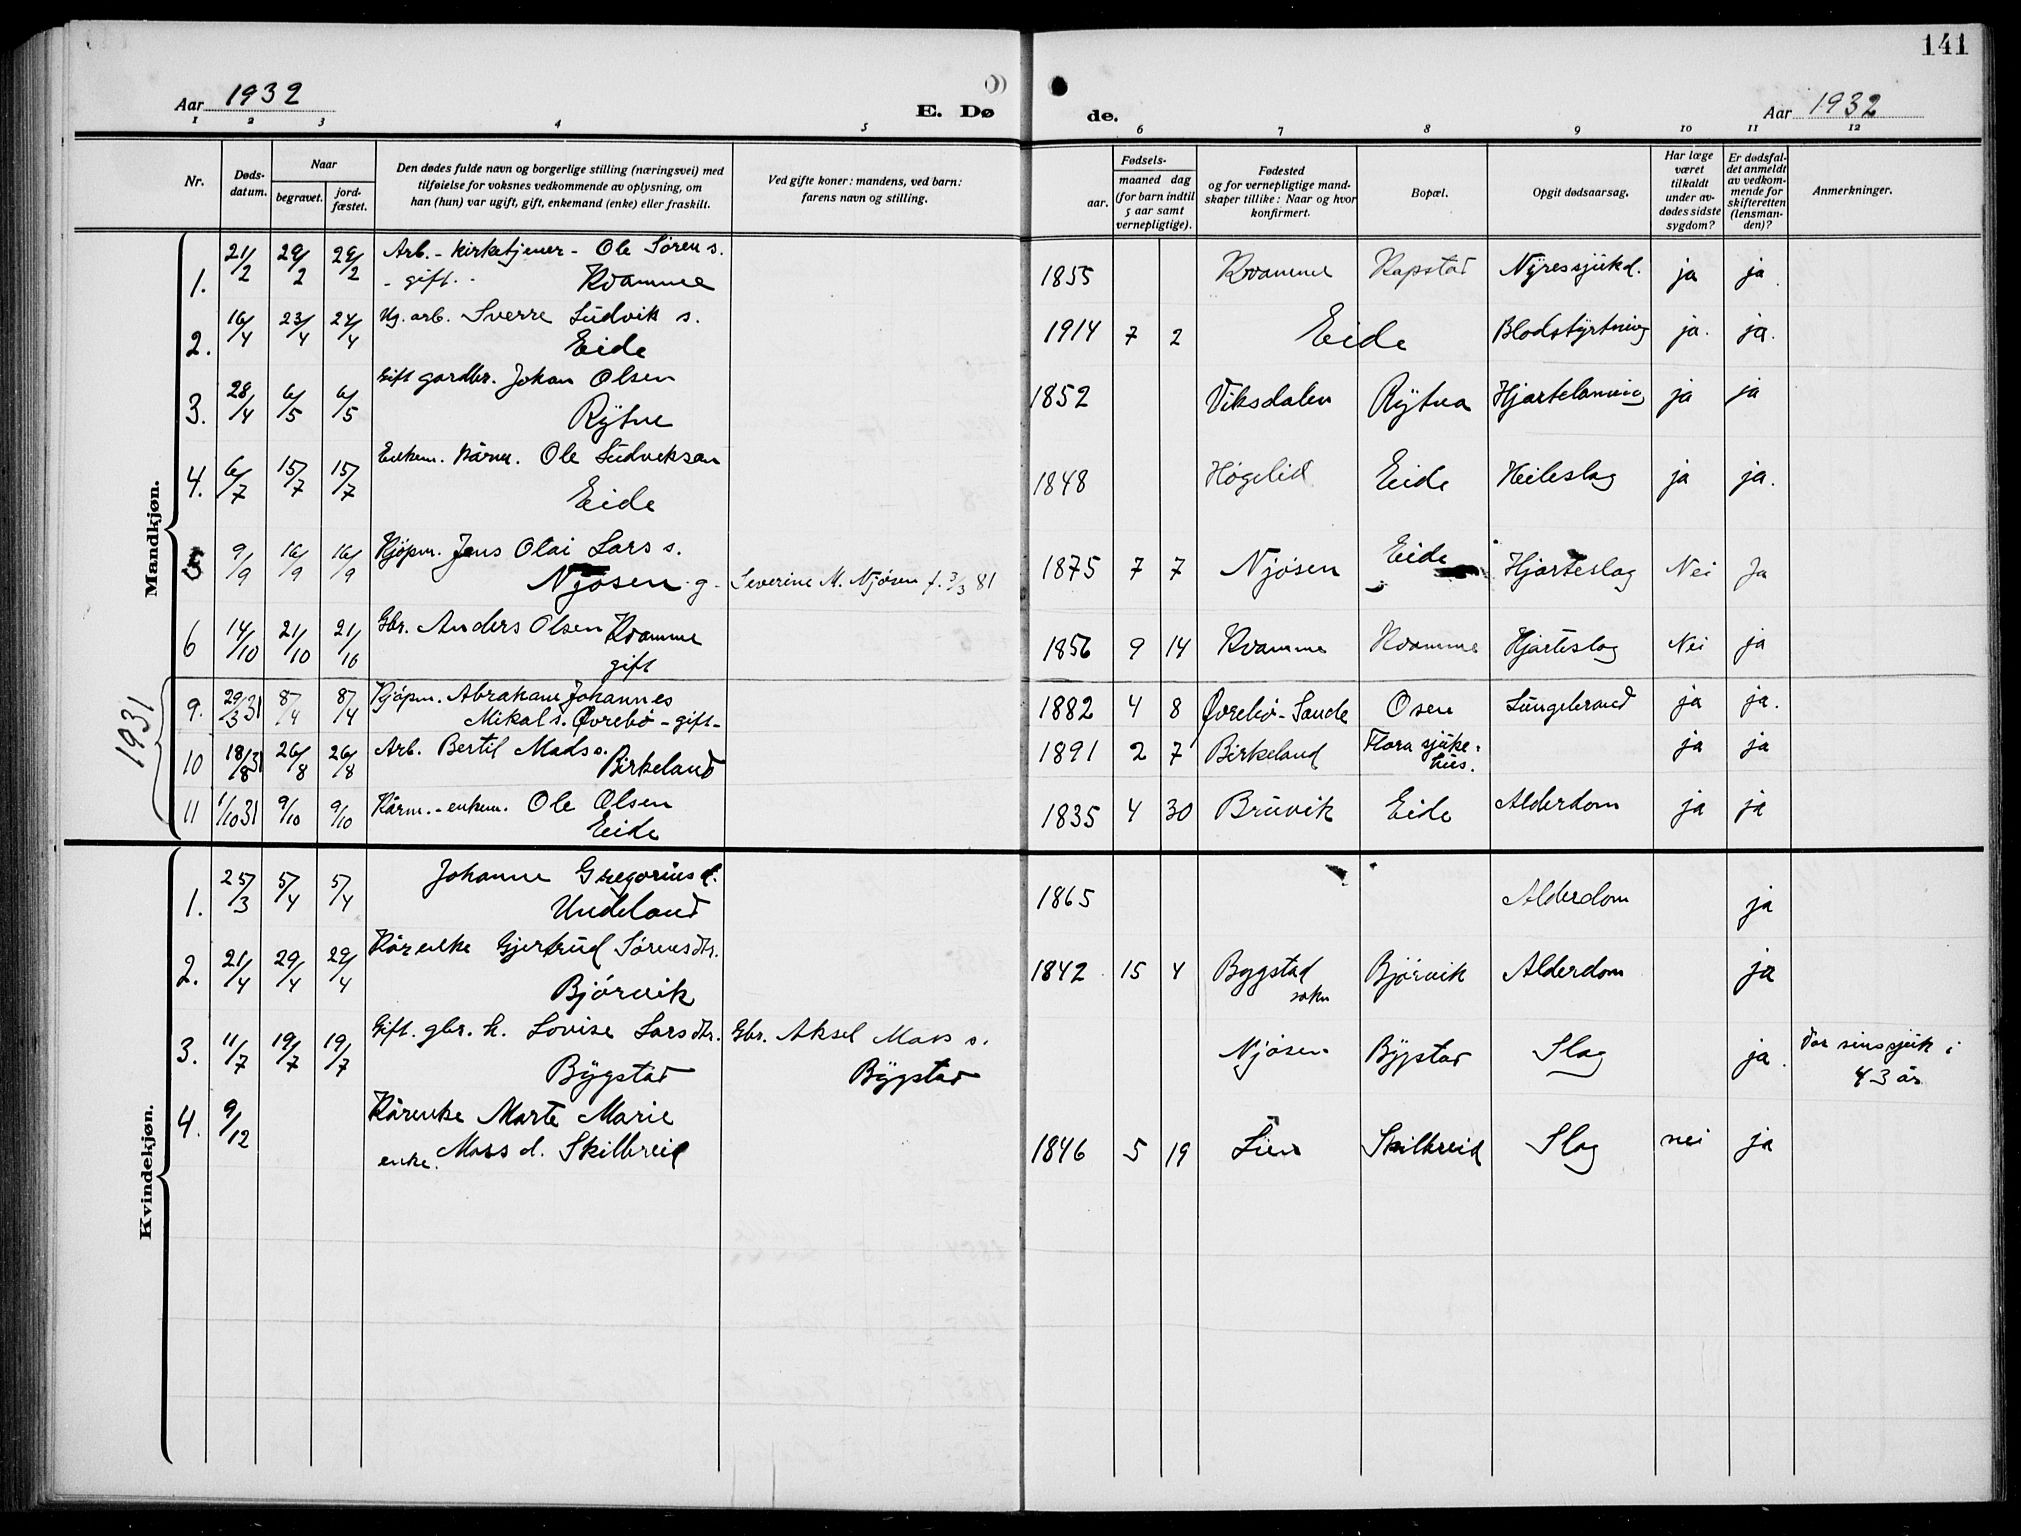 141
Aar 1932
E. Dø
de.
Aar 1932
1 2 3 4 5 6 7 8 9 10 11 12
Nr.
Døds-
datum.
Naar
begravet.
jord-
fæstet.
Den dødes fulde navn og borgerlige stilling (næringsvei) med
tilføielse for voksnes vedkommende av oplysning, om
han (hun) var ugift, gift, enkemand (enke) eller fraskilt.
Ved gifte koner: mandens, ved barn:
farens navn og stilling.
Fødsels-
aar.
maaned dag
(for barn indtil
5 aar samt
vernepligtige).
Fødested
og for vernepligtige mand-
skaper tillike: Naar og hvor
konfirmert.
Bopæl.
Opgit dødsaarsag.
Har læge
været
tilkaldt
under av-
dødes sidste
sygdom?
Er dødsfal-
det anmeldt
av vedkom-
mende for
skifteretten
(lensman-
den)?
Anmerkninger.
Mandkjøn.
1. 21/2 29/2 29/2 Arb. - kirketjener - Ole Sørens.
- gift - Kvamme 1855 Kvamme Kapstad Nyressjukd. ja ja.
2. 16/4 23/4 24/4 Ug. arb. Sverre Ludvik s.
Eide 1914 7 2 Eide Blodstyrtning ja. ja.
3. 28/4 6/5 6/5 Gift gardbr. Johan Olsen
Rytne 1852 Viksdalen Rytna Hjartelaming ja ja
4. 6/7 15/7 15/7 Enkem. kårm. Ole Ludveksan
Eide 1848 Høgelid Eide Heileslag ja ja.
5 9/9 16/9 16/9 Kjøpm. Jens Olai Lars s.
Njøsen - g - Severine M. Njøsen f. 3/3 81 1875 7 7 Njøsen Eide Hjarteslag Nei Ja
6 14/10 21/10 21/10 Gbr. Anders Olsen Kvamme
gift 1856 9 14 Kvamme Kvamme Hjarteslag Nei ja
1931
9. 29/3 31 8/4 8/4 Kjøpm. Abraham Johannes
Mikal s. Øvrebø - gift - 1882 4 8 Øvrebø - Sande Osen Lungebrand ja ja.
10 18/8 31 26/8 26/8 Arb. Bertil Mads s.
Birkeland 1891 2 7 Birkeland Flora sjuke-
hus. ja ja
11 1/10 31 9/10 9/10 Kårm. - enkem. Ole Olsen
Eide 1835 4 30 Bruvik Eide Alderdom ja ja
Kvindekjøn.
1. 25/3 5/4 5/4 Johanne Gregorius d.
Undeland 1865 Alderdom ja
2. 21/4 29/4 29/4 Kårenke Gjertrud Sørensdtr.
Bjørvik 1842 15 4 Bygstad
sokn Bjørvik Alderdom ja
3. 11/7 19/7 19/7 Gift. gbr. k. Lovise Larsdtr. Gbr. Aksel Mass s.
Bygstad Bygstad Njøsen Bygstad Slag ja. Var sinssjuk i
43 år
4. 9/12 Kårenke Marte Marie
enke. Mass d. Skilbreid 1846 5 19 Lien Skilbreid Slag nei ja